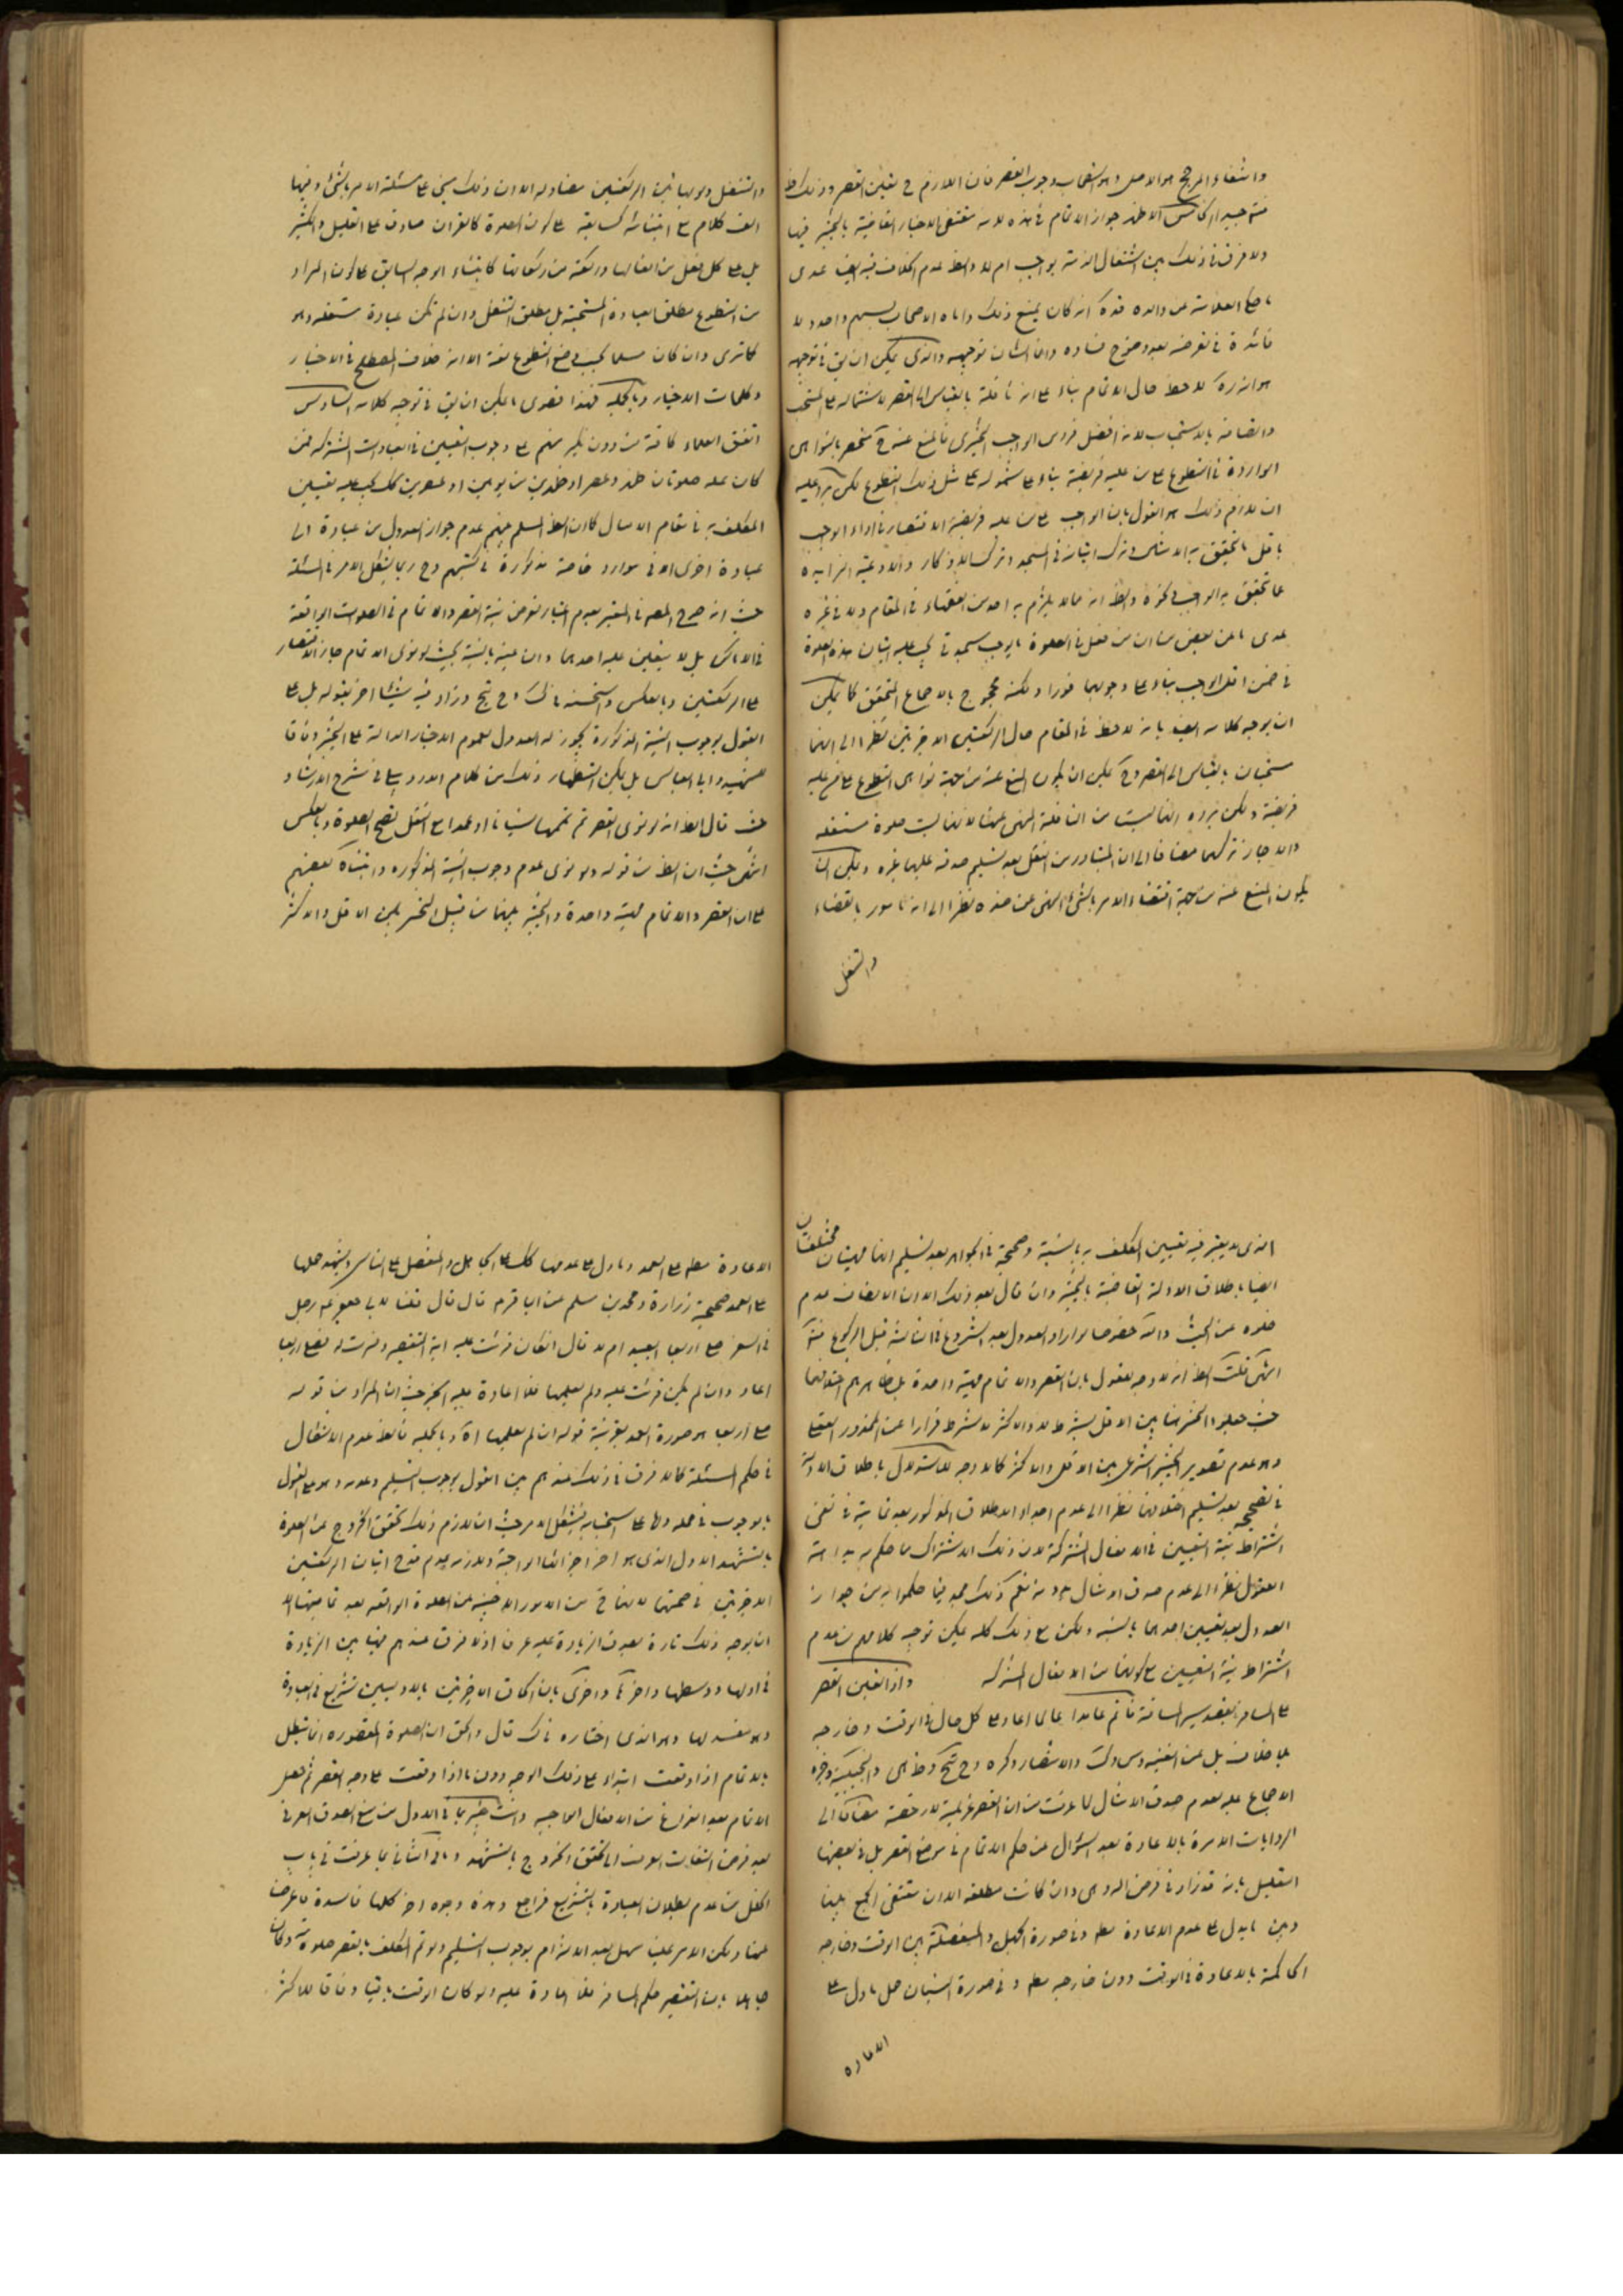 وانتفاء المرجح هو الاصل وهو استصحاب وجوب القصر فان اللازم ح تعين القصر وذلك
الاظهر جواز الاتمام في هذه لانه مقتضى الاخبار القاضية بالتخيير فيها
ولا فرق في ذلك بين اشتغال الذمة بواجب ام لا والظ عدم الخلاف فيه ايضا عدى
ما حكى العلامة عن والده قده انه كان يمنع ذلك واباه الاصحاب
فائدة في تعرضه بعد وضوح فساده وانما الشان توجيهه والذي يمكن ان يق في توجيهه
هو انه ره لاحظ حال الاتمام بناء على انه نافلة بالقياس الى القصر لاشتماله على المستحب
بالاستحباب لانه افضل فردى الواجب التخييرى فالمنع عنه ح منحصر بالنواهى
الواردة في التطوع على من عليه فريضة بناء على شموله على مثل ذلك التطوع لكن يرد عليه
ان لازم ذلك هو القول بان الواجب على من عليه فريضة الاقتصار في اداء الواجب
باقل ما يتحقق به الامتثال في ترك اتيانه في المسجد وترك الاذكار والادعية الزايدة
عما تحقق به الواجب في نحوه والظ انه مما لا يلتزم به احد من الفقهاء في المقام ولا في غيره
عدى ما عن بعض من ان من فعل في الصلوة ما يوجب سجدتى يجب عليه اتيان هذه الصلوة
في ضمن اقل الواجب بناء على وجوبهما فورا ولكنه محجوج بالاجماع المتحقق كما يمكن
ان يوجه كلامه ايضا بانه لاحظ في المقام حال الركعتين الاخيرتين نظرا الى انهما
مستحبان بالقياس الى القصر وح يمكن ان يكون المنع عنه من جهة نواهى التطوع على من عليه
فريضة ولكن يرده انها ليست من النافلة المنهى عنها لانها ليست صلوة مستقلة
والا جاز تركهما مضافا الى ان المتبادر من النفل بعد تسليم صدقه عليهما غيره ويمكن ان
يكون المنع عنه من جهة اقتضاء الامر بالشئ النهى عن ضده نظرا الى انه مامور بالقضاء
والتنفل
والتنفل ولو بهاتين الركعتين مضاد له الا ان ذلك مبنى على مسئلة الامر بالشئ وفيها
الف كلام مع ابتنائه كسابقه على كون الصلوة كالقران صادق على القليل والكثير
بل على كل فعل من افعالها وركعة من ركعاتها كابتناء الوجه السابق على كون المراد
من التطوع مطلق العبادة المستحبة بل مطلق التنفل وان لم تكن عبادة مستقلة وهو
كما ترى وان كان مسلما بحسب وضع التطوع لغة الا انه خلاف المصطلح في الاخبار
وكلمات الاخيار وبالجملة فهذا قصرى ما يمكن ان يق في توجيه كلامه السادس
اتفق العلماء كافة من دون نكير منهم على وجوب التعيين في العبادات المشتركة فمن
كان عليه صلوتان ظهر وعصر او ظهرين من يومين او عصرين كك يجب عليه تعيين
المكلف به في مقام الامتثال كما ان الظ المسلم بينهم عدم جواز العدول من عبادة الى
عبادة اخرى الا في موارد خاصة مذكورة في كتبهم وح ربما يشكل الامر في المسئلة
حيث انه صرح المصه في المعتبر بعدم اعتبار تعرض نية القصر والاتمام في الصلوات الواقعة
في الاماكن بل لا يتعين عليه احدهما وان عينه بالنية بحيث لو نوى الاتمام جاز الاقتصار
على الركعتين وبالعكس واستحسنه في ك وزاد فيه شيئا اخر بقوله بل على
القول بوجوب النية المذكورة يجوز له العدول لعموم الاخبار الدالة على التخيير وفاقا
للشهيد وابى العباس بل يمكن استظهار ذلك من كلام الاردبيلى في شرح الارشاد
حيث قال الظ انه لو نوى القصر ثم تممها نسيانا او عمدا مع النقل تصح الصلوة وبالعكس
انتهى حيث ان الظ من قوله ولو نوى عدم وجوب النية المذكورة وابتناه بعضهم
على ان القصر والاتمام مهية واحدة والتخيير بينهما من قبيل التخيير بين الاقل والاكثر
الذى لا يعتبر فيه تعيين المكلف به بالنية وصححه في الجواهر بعد تسليم انهما مهيتان مختلفتان
ايضا باطلاق الادلة القاضية بالتخيير وان قال بعد ذلك الا ان الانصاف عدم
خلوه عن البحث والله خصوصا لو اراد العدول بعد الشروع في الثالثة قبل الركوع
انتهى قلت الظ انه لا وجه للقول بان القصر والاتمام مهية واحدة بل ظاهرهم اختلافهما
حيث جعلوا التخيير هنا بين الاقل بشرط لا والاكثر لا بشرط فرارا عن المحذور العقلى
وهو عدم تصوير التخيير الشرعى بين الاقل والاكثر كما لا وجه للاستدلال باطلاق الادلة
في تصحيحه بعد تسليم اختلافهما نظرا الى عدم اجداء الاطلاق المذكور بعد تماميته في نفى
اشتراط نية التعيين في الافعال المشتركة لان ذلك الاشتراك مما حكم به بداهة
العقول نظرا الى عدم صدق الامتثال بدونه نعم كذلك مجد فيما حكموا به من جواز
العدول بعد تعيين احدهما بالنية ولكن مع ذلك كله يمكن توجيه كلامهم من عدم
اشتراط نية التعيين مع كونهما من الافعال المشتركة واذا تعين القصر
على المسافر بقصد مسير المسافة فاتم عامدا عالما اعاد على كل حال في الوقت وخارجه
بلا خلاف بل عن الغنية
الاجماع عليه لعدم صدق الامتثال لما عرفت من ان القصر عزيمة لا رخصة مضافا الى
الروايات الامرة بالاعادة بعد السؤال عن حكم الاتمام في موضع القصر بل في بعضها
التعليل بانه قد زاد في فرض الله وهى وان كانت مطلقة الا ان مقتضى الجمع بينها
وبين ما يدل على عدم الاعادة مط وفي صورة الجهل والمفصلة بين الوقت وخارجه
الحاكمة بالاعادة في الوقت دون خارجه مط وفي صورة النسيان حمل ما دل على
الاعادة
الاعادة مط على العمد وما دل على عدمها كك على الجاهل والمفصل على الناسى ويشهد حملها
على العمد صحيحة زرارة ومحمد بن مسلم عن ابا قره قال قال قلنا لابى جعفر ع رجل
في السفر صلى اربعا ايعيد ام لا قال ان كان قرئت عليه اية التقصير وفسرت له فصلى اربعا
اعاد وان لم يكن قرئت عليه ولم يعلمها فلا اعادة عليه الخبر حيث ان المراد من قوله
صلى اربعا هو صورة العمد بقرينة قوله ان لم يعلمها اه وبالجملة فالظ عدم الاشكال
في حكم المسئلة كما لا فرق في ذلك عندهم بين القول بوجوب التسليم وعدمه وهو على القول
بالوجوب في محله واما على استحبابه يشكل الامر حيث ان لازم ذلك تحقق الخروج عن الصلوة
بالتشهد الاول الذى هو اخر اجزائها الواجبة ولازمه عدم قدح اتيان الركعتين
الاخيرتين في صحتها لانها ح من الامور الاجنبية عن الصلوة الواقعة بعد تماميتها الا
ان يوجه ذلك تارة بصدق الزيادة عليه عرفا اذ لا فرق عندهم فيها بين الزيادة
في اولها ووسطها واخرها واخرى بان الحاق الاخيرتين بالاوليين تشريع في العبادة
وهو مفسد لها وهو الذى اختاره في ك قال والحق ان الصلوة المقصورة انما تبطل
بالاتمام اذا وقعت ابتداء على ذلك الوجه دون ما اذا وقعت على وجه القصر ثم حصل
الاتمام بعد الفراغ من الافعال الواجبة وانت خبير بما في الاول من منع الصدق العرفى
بعد فرض التفات العرف الى تحقق الخروج بالتشهد وما في الثانى بما عرفت في باب
الخلل من عدم بطلان العبادة بالتشريع فراجع وهذه وجوه اخر كلها فاسدة فاعرضنا
عنها ولكن الامر علينا سهل بعد الالتزام بوجوب التسليم ولو تم المكلف بالقصر صلوته وكان
جاهلا بان التقصير حكم المسافر فلا اعادة عليه ولو كان الوقت باقيا وفاقا للاكثر